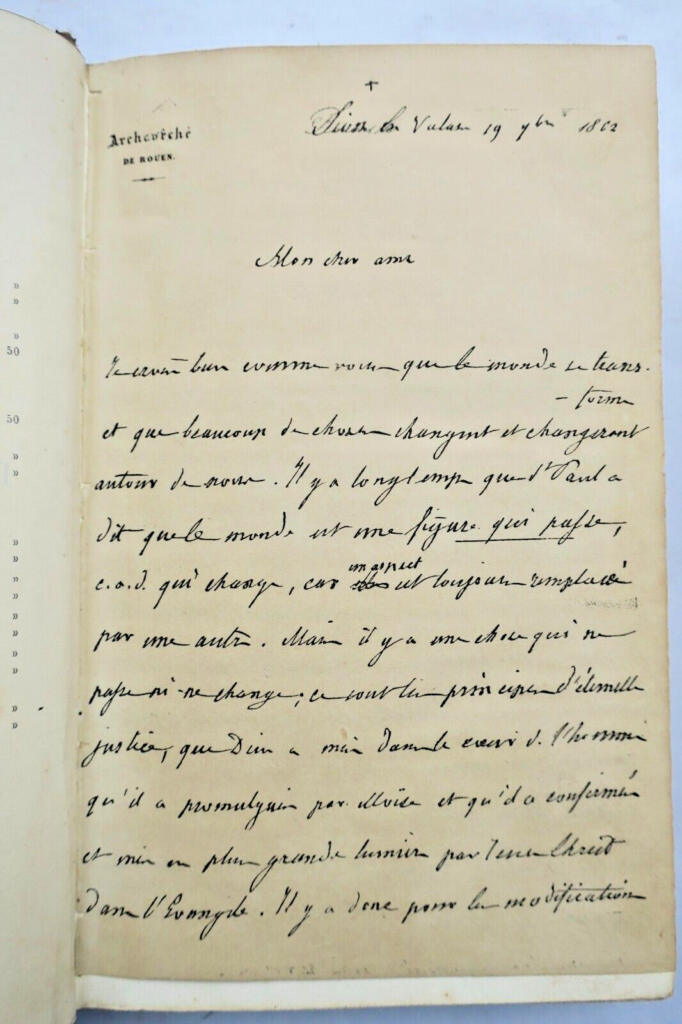 +
Archevêché
DE ROUEN.
19 9bre 1862
Mon cher ami
Je crois bien comme vous que le monde se trans-
- forme
et que beaucoup de choses changent et changeront
autour de nous. Il y a longtemps que St Paul a
dit que le monde est une figure qui passe,
c.a.d. qui change, car un aspect est toujours remplacé
par une autre. Mais il y a une chose qui ne
passe ni ne change; ce sont les principes d'éternelle
justice, que Dieu a mis dans le cœur de l'homme
qu'il a promulgués par Moïse et qu'il a confirmés
et mis en plus grande lumière par Jesus Christ
dans l'Evangile. Il y a donc pour les modifications
»
»
50
50
»
»
»
»
»
»
»
»
»
»